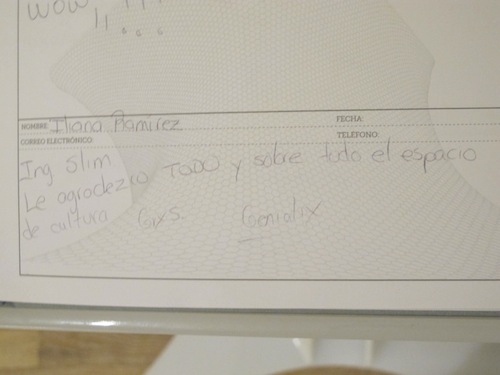 WOW,, !!!
NOMBRE: Iliana Ramirez FECHA:
CORREO ELECTRÓNICO: TELÉFONO:
Ing Slim
Le agradezco TODO y sobre todo el espacio
de cultura Gixs. Genialix